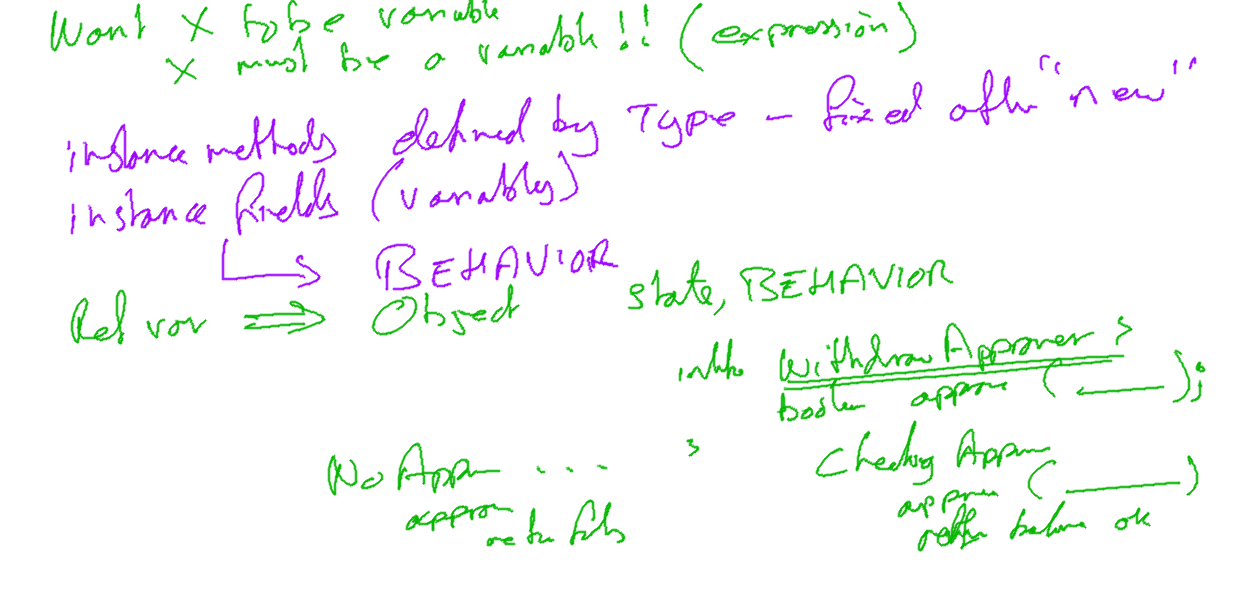 Want X to be variable
X must be a variable!! (expression)
instance methods defined by Type - fixed after "new"
instance fields (variables)
BEHAVIOR
Ref var ⇒ Object state, BEHAVIOR
WithdrawApprover {
boolean approve ( );
}
No Appr ...
approve
return false
Checking Approver
approve ( )
return balance ok